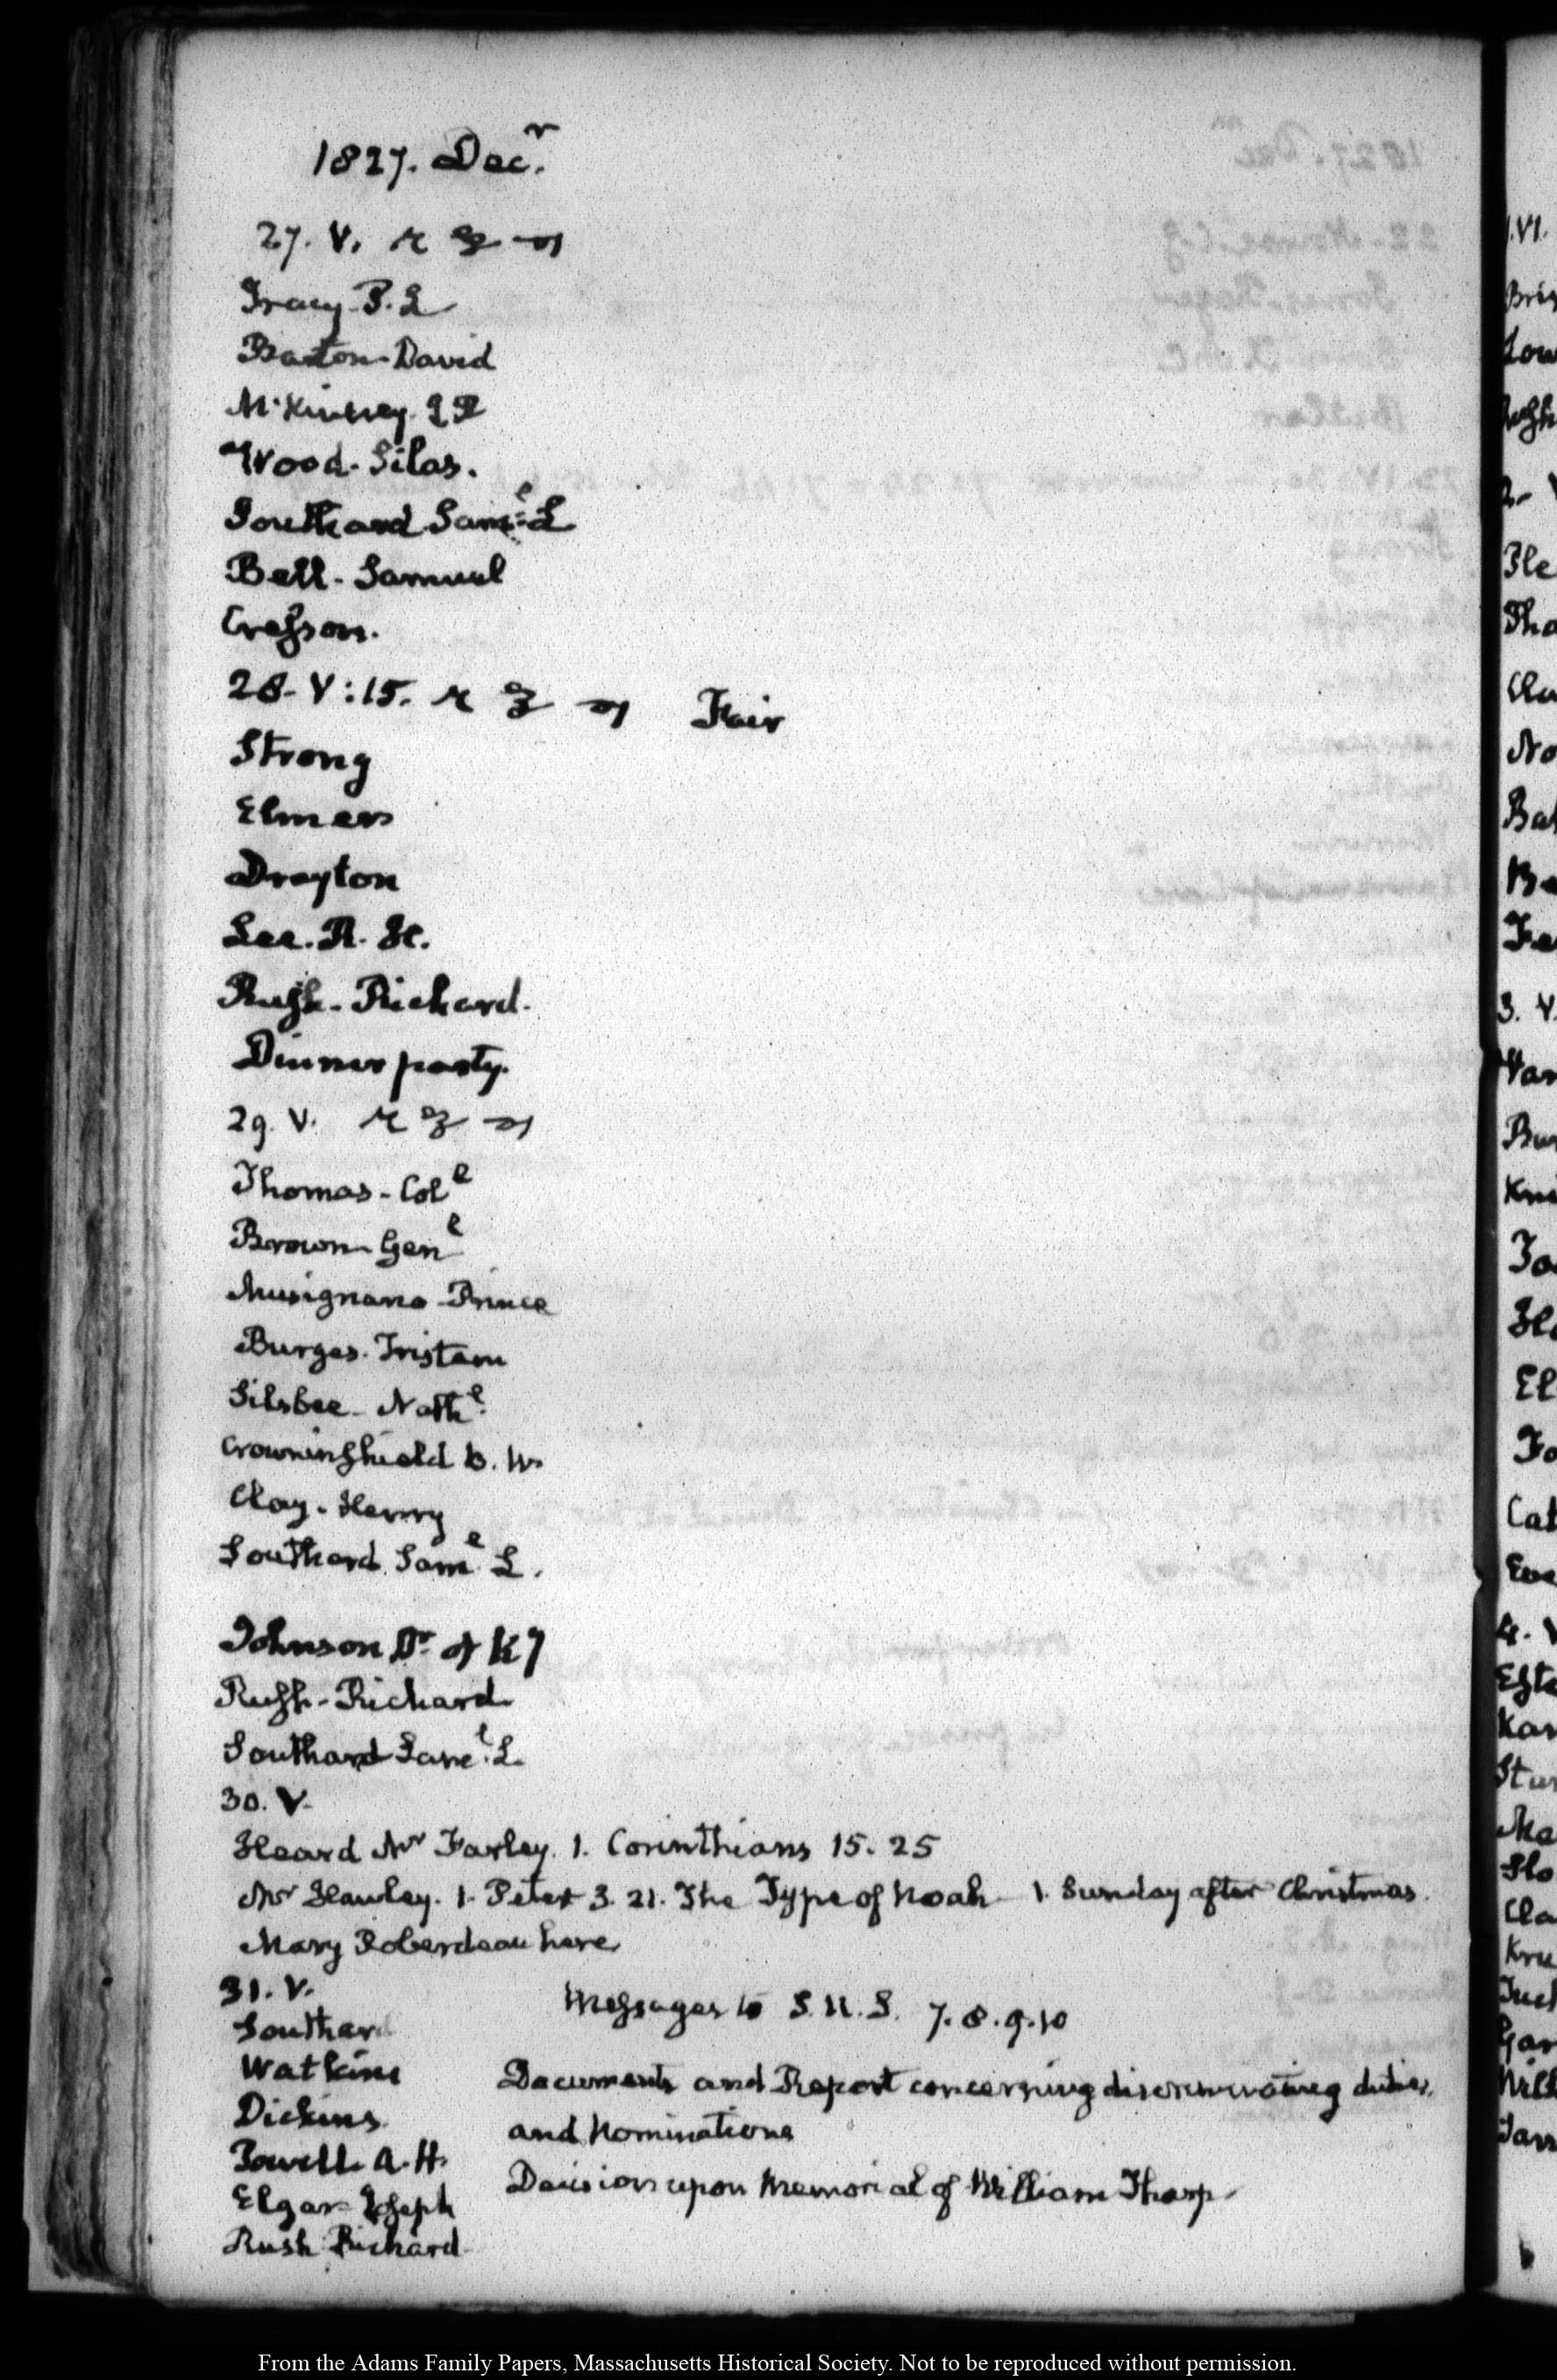 1827. Decr.
27. V.
Tracy P. L
Barton David
McKinley
Wood. Silas.
Southard Saml. L
Bell. Samuel
Cresson.
28. V:15. Fair
Strong
Elmers
Drayton
Lee. R. H.
Rush. Richard.
Dinner party.
29. V.
Thomas. Coll
Brown. Genl
Musignano Prince
Burges. Tristam
Silsbee. Nathl.
Crowninshield B. W.
Clay. Henry
Southard Saml L.
Johnson Dr. of Ky
Rush. Richard
Southard Saml. L.
30. V.
Heard Mr Farley. 1. Corinthians 15. 25
Mr Hawley. 1. Peter 3. 21. The Type of Noah 1. Sunday after Christmas.
Mary Roberdeau here
31. V. Messages to S. U. S. 7. 8. 9. 10
Southard
Watkins Documents and Report concerning discriminating duties,
Dickins and Nominations
Powell A. H.
Elgar Joseph Decision upon Memorial of William Tharp
Rush Richard
From the Adams Family Papers, Massachusetts Historical Society. Not to be reproduced without permission.